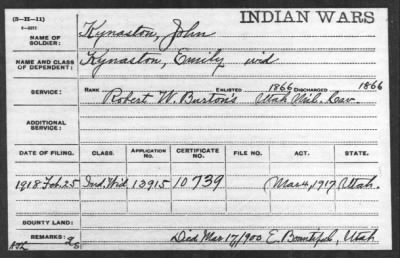 (3-II-11)
INDIAN WARS
NAME OF SOLDIER: Kynaston, John
NAME AND CLASS OF DEPENDENT: Kynaston, Emily wid
SERVICE: RANK ENLISTED 1866 DISCHARGED 1866
Robert W. Burton's Utah Mil. Cav.
ADDITIONAL SERVICE:
DATE OF FILING. CLASS. APPLICATION NO. CERTIFICATE NO. FILE NO. ACT. STATE.
1918 Feb. 25 Ind. Wid. 13915 10739 Mar 4, 1917 Utah.
BOUNTY LAND:
REMARKS: Died Mar 17/1900 E. Bountiful, Utah